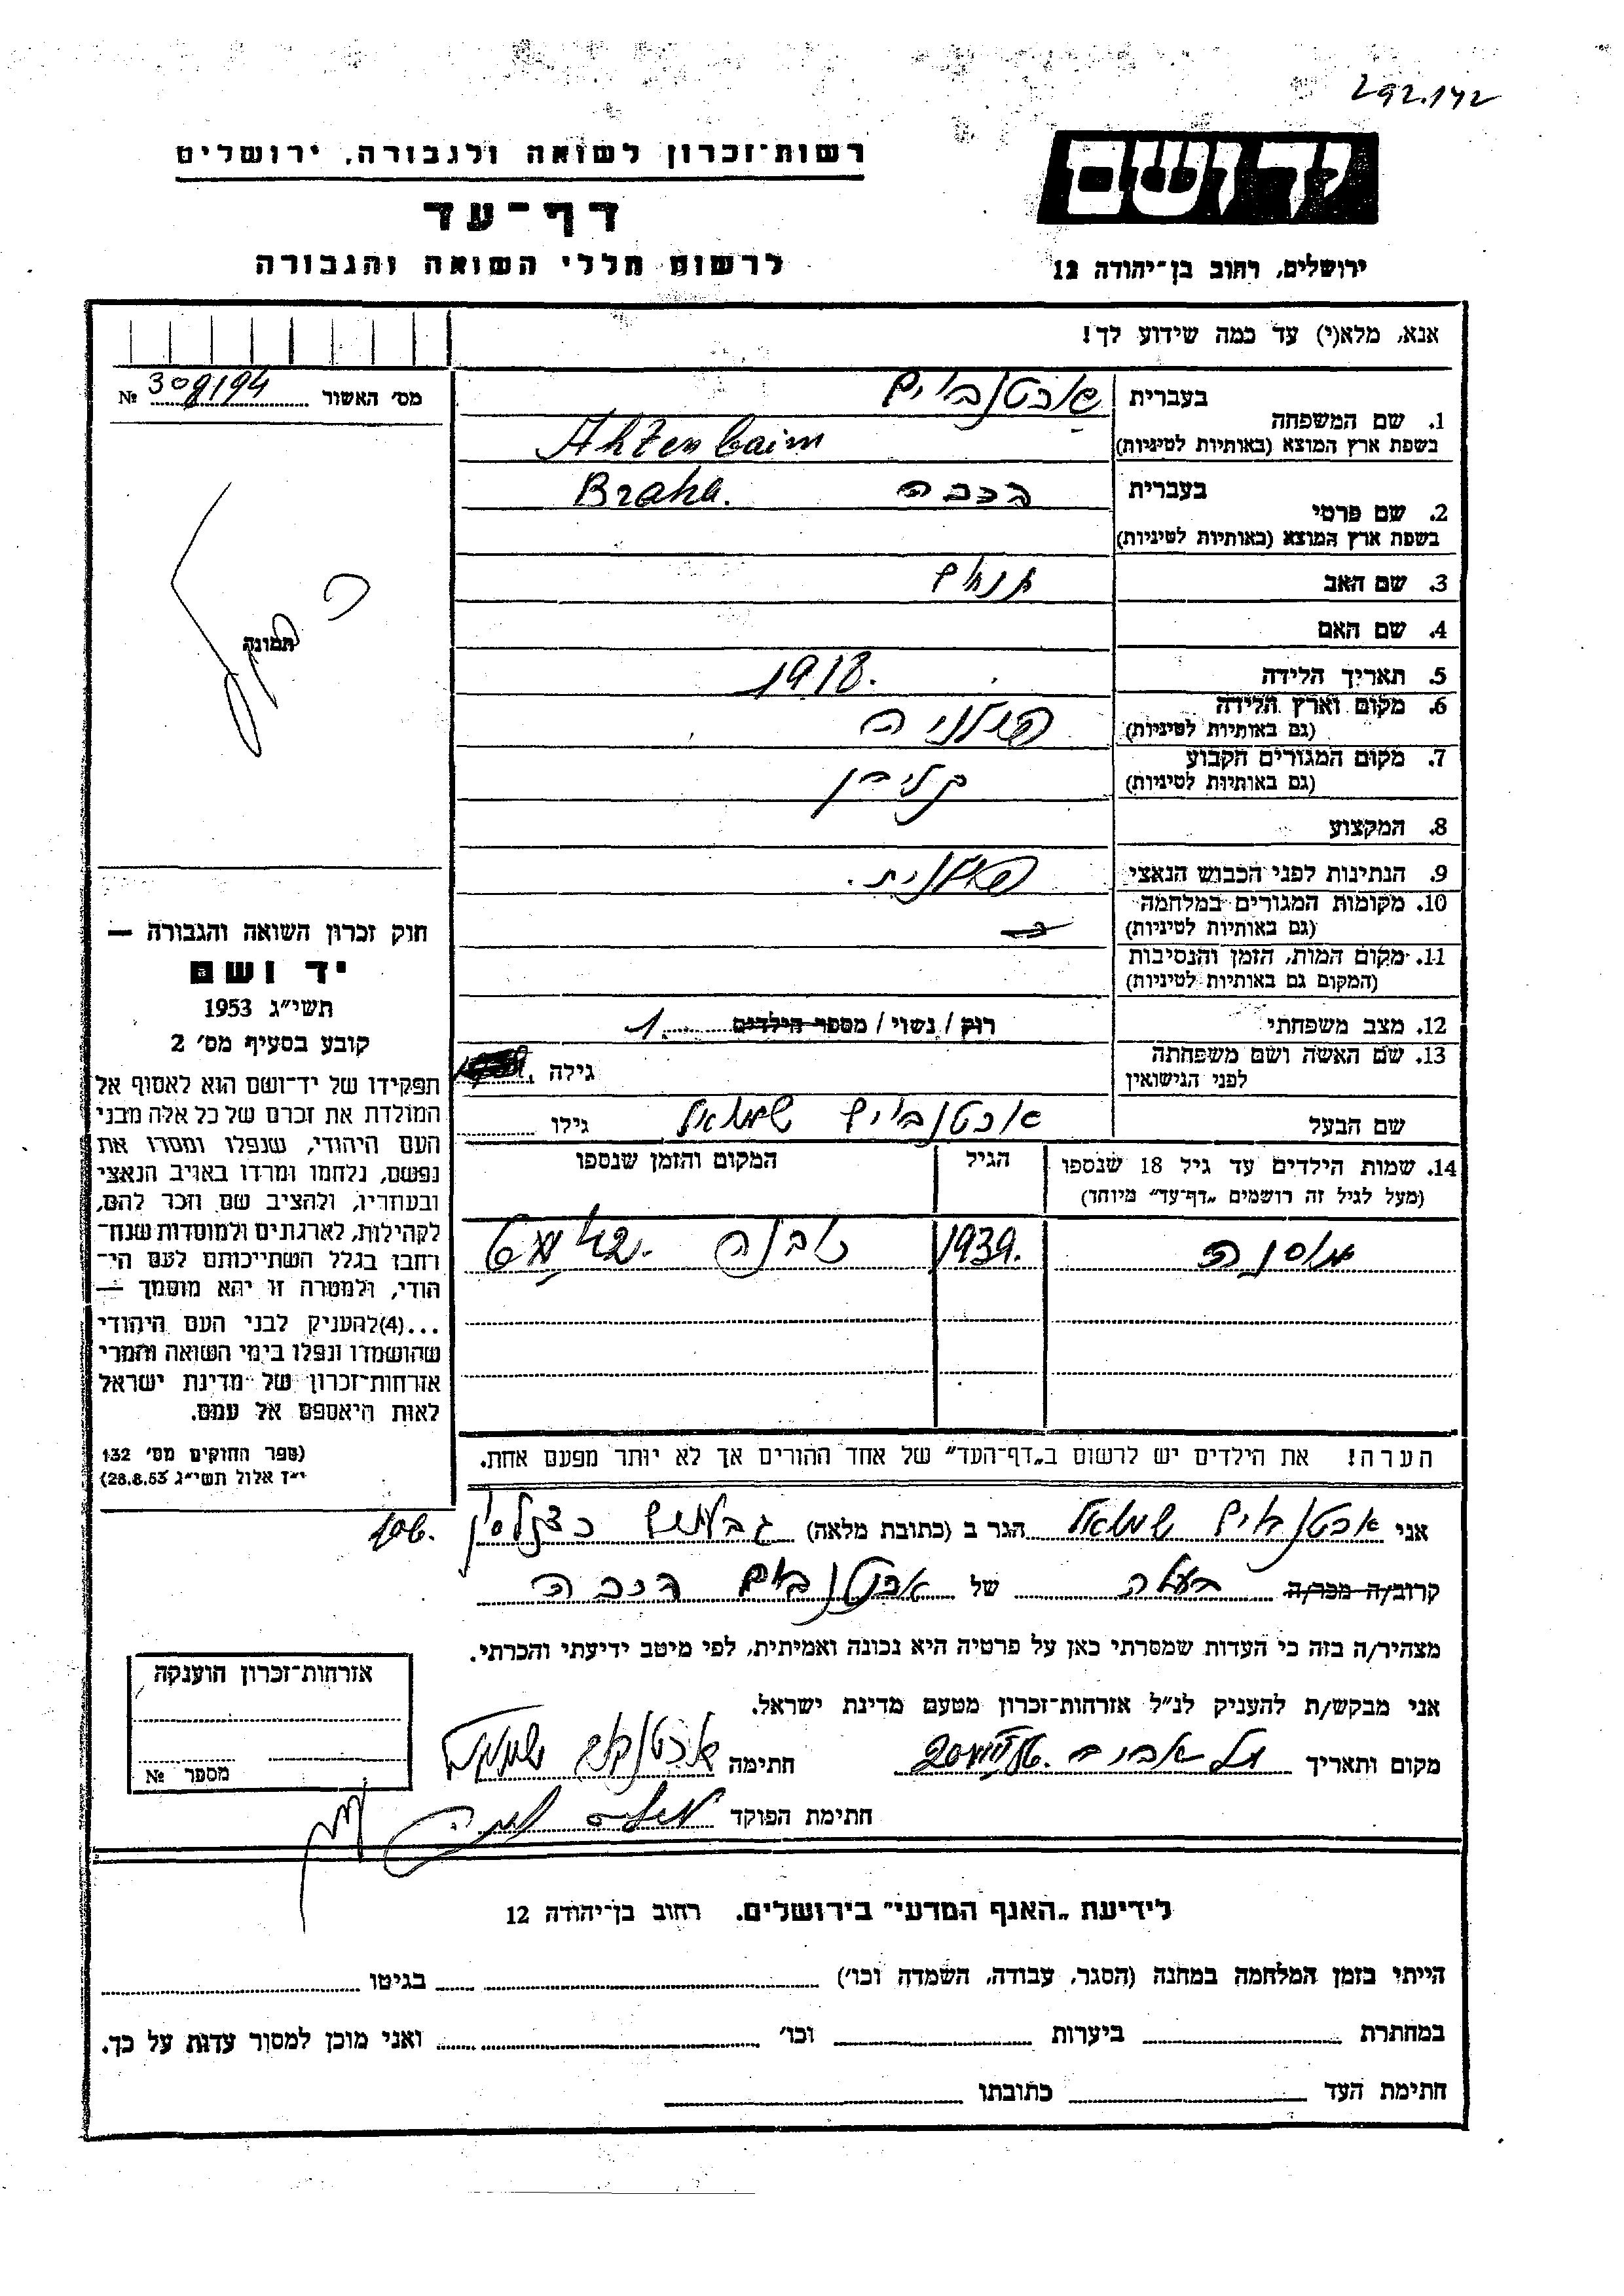 292.142
יד ושם
רשות־זכרון לשואה ולגבורה, ירושלים
דף־עד
לרשום חללי השואה והגבורה
ירושלים, רחוב בן־יהודה 12
אנא, מלא(י) עד כמה שידוע לך!
מס׳ האשור 308194 №
תמונה
1. שם המשפחה
בעברית אכטנביים
בשפת ארץ המוצא (באותיות לטיניות) Ahtenbaim
2. שם פרטי
בעברית Braha.
בשפת ארץ המוצא (באותיות לטיניות)
3. שם האב תנחום
4. שם האם
5. תאריך הלידה 1918.
6. מקום וארץ הלידה פולניה
(גם באותיות לטיניות)
7. מקום המגורים הקבוע
(גם באותיות לטיניות)
8. המקצוע
9. הנתינות לפני הכבוש הנאצי פולנית.
10. מקומות המגורים במלחמה
(גם באותיות לטיניות)
11. מקום המות, הזמן והנסיבות
(המקום גם באותיות לטיניות)
12. מצב משפחתי רוק / נשוי / מספר הילדים 1
13. שם האשה ושם משפחתה גילה
לפני הנישואין
שם הבעל אכטנבוים שמואל גילו
14. שמות הילדים עד גיל 18 שנספו הגיל המקום והזמן שנספו
(מעל לגיל זה רושמים „דף־עד״ מיוחד)
1939.
הערה! את הילדים יש לרשום ב„דף־העד״ של אחד ההורים אך לא יותר מפעם אחת.
חוק זכרון השואה והגבורה —
יד ושם
תשי״ג 1953
קובע בסעיף מס׳ 2
תפקידו של יד־ושם הוא לאסוף אל
המולדת את זכרם של כל אלה מבני
העם היהודי, שנפלו ומסרו את
נפשם, נלחמו ומרדו באויב הנאצי
ובעוזריו, ולהציב שם וזכר להם,
לקהילות, לארגונים ולמוסדות שנח־
רחבו בגלל השתייכותם לעם הי־
הודי, ולמטרה זו יהא מוסמך —
...(4)להעניק לבני העם היהודי
שהושמדו ונפלו בימי השואה והמרי
אזרחות־זכרון של מדינת ישראל
לאות היאספם אל עמם.
(ספר החוקים מס׳ 132
י״ז אלול תשי״ג 28.8.53)
אני אכטנבוים שמואל הגר ב (כתובת מלאה) גבעתיים כצנלסון 106.
קרוב/ה מכר/ה בעלה של אכטנבוים
מצהיר/ה בזה כי העדות שמסרתי כאן על פרטיה היא נכונה ואמיתית, לפי מיטב ידיעתי והכרתי.
אני מבקש/ת להעניק לנ״ל אזרחות־זכרון מטעם מדינת ישראל.
מקום ותאריך תל אביב חתימה אכטנבוים שמואל
חתימת הפוקד
אזרחות־זכרון הוענקה
מספר №
לידיעת „האגף המדעי״ בירושלים. רחוב בן־יהודה 12
הייתי בזמן המלחמה במחנה (הסגר, עבודה, השמדה וכו׳) בגיטו
במחתרת ביערות וכו׳ ואני מוכן למסור עדות על כך.
חתימת העד כתובתו